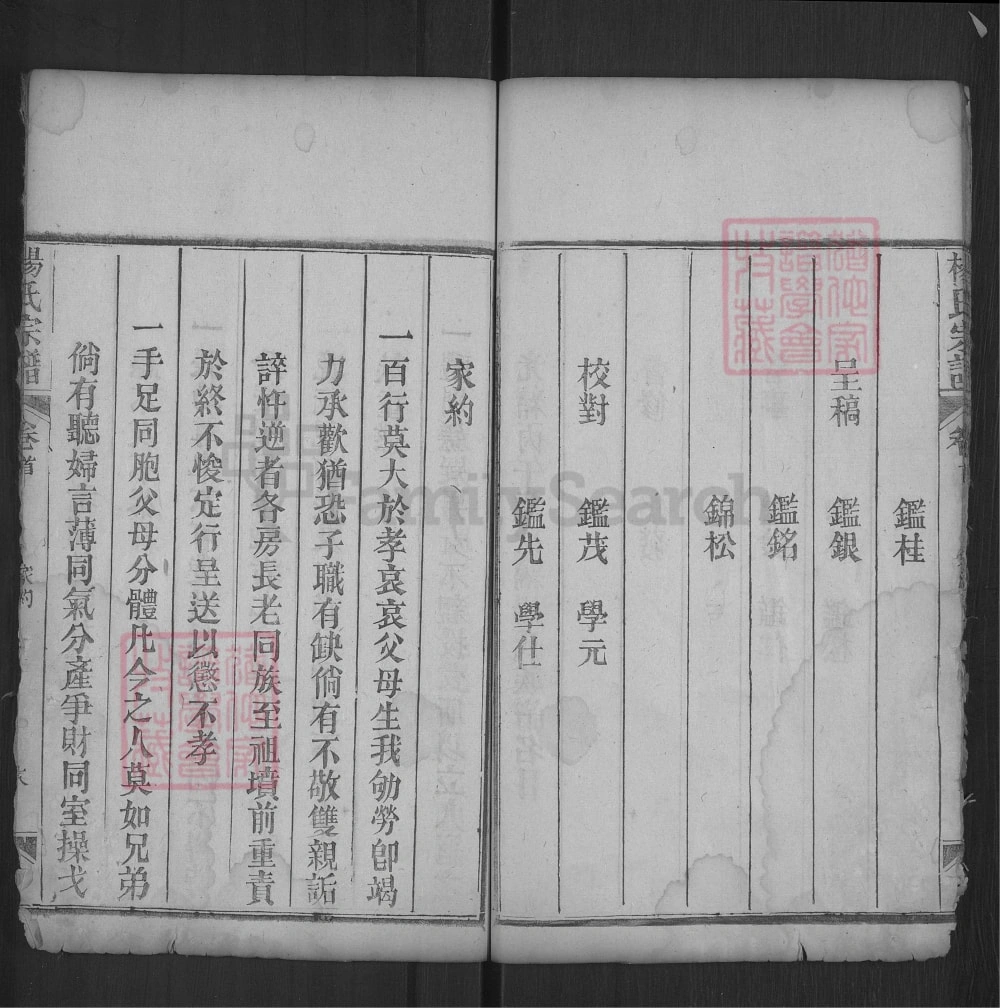 楊氏宗譜
鑑桂
呈稿 鑑銀
鑑銘
錦松
校對 鑑茂 學元
鑑先 學仕
家約
一百行莫大於孝哀哀父母生我劬勞卽竭
力承歡猶恐子職有缺倘有不敬雙親詬
誶忤逆者各房長老同族至祖墳前重責
於終不悛定行呈送以懲不孝
一手足同胞父母分體凡今之人莫如兄弟
倘有聽婦言薄同氣分產爭財同室操戈
楊氏宗譜 卷首 家約
FamilySearch